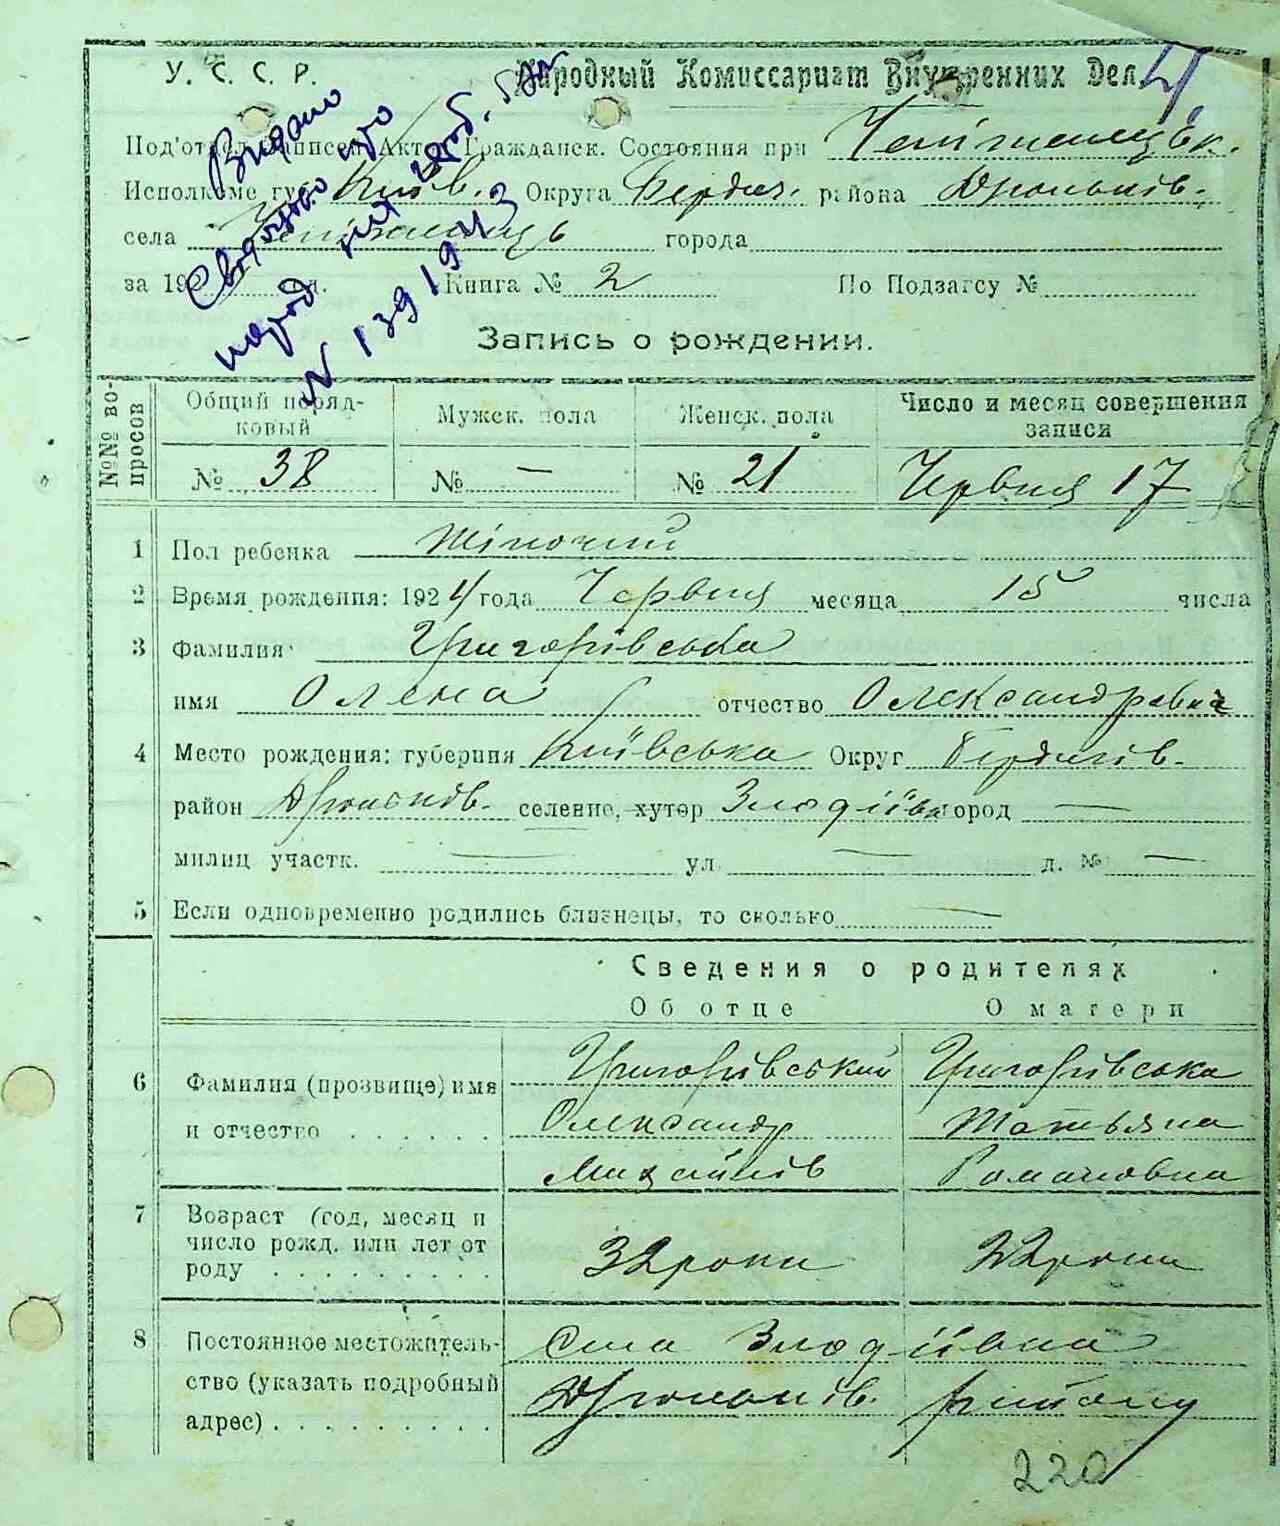 У. С. С. Р. Народный Комиссариат Внутренних Дел.
Под'отдел Записей Актов Гражданск. Состояния при
Исполкоме губ. Київ. Округа Бердич. района
села города
за 192 Книга № 2 По Подзагсу №
Видано
Свідоцтво про
народ
№ 139 1943
Запись о рождении.
№№ вопросов
Общий порядковый Мужск. пола Женск. пола Число и месяц совершения записи
№ 38 № — № 21 Червня 17
1 Пол ребенка Жіночий
2 Время рождения: 1924 года Червня месяца 15 числа
3 Фамилия Григорівська
имя Олена отчество Олександровна
4 Место рождения: губерния Київська Округ Бердичів.
район селение, хутор Злодіївка город —
милиц участк. — ул. — д. № —
5 Если одновременно родились близнецы, то сколько —
Сведения о родителях
Об отце О матери
6 Фамилия (прозвище) имя Григорівський Григорівська
и отчество . . . . . . Олександр Татьяна
Михайлів Романовна
7 Возраст (год, месяц и
число рожд. или лет от
роду . . . . . . . . . 32 роки 22 роки
8 Постоянное местожитель- Село Злодіївка
ство (указать подробный району
адрес) . . . . . . . . .
220